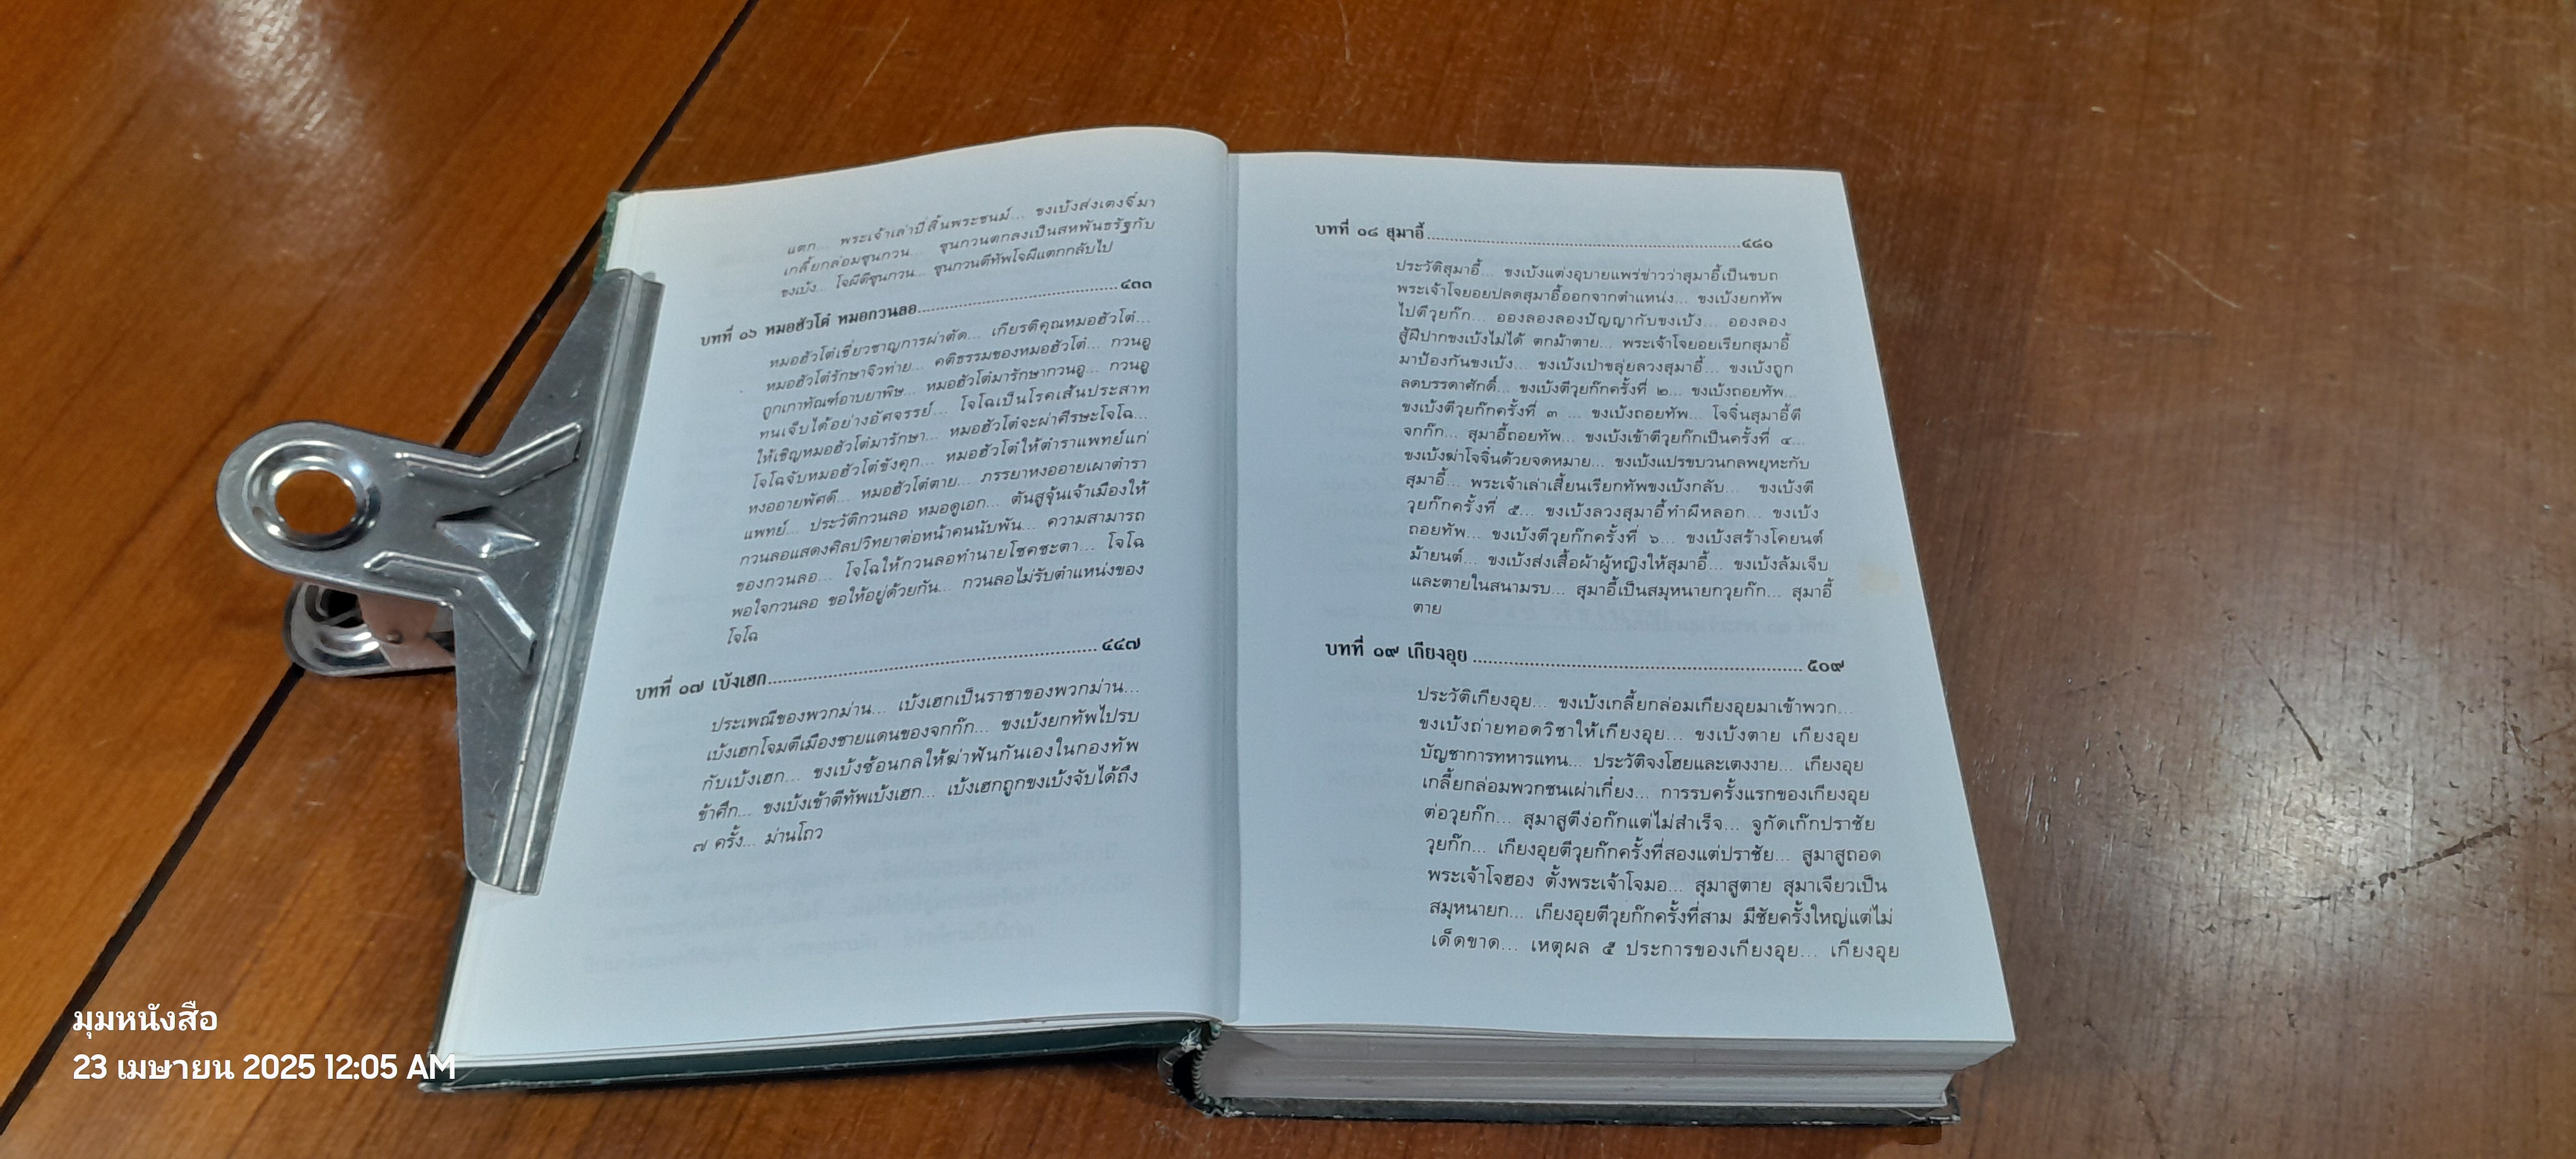 แตก... พระเจ้าเล่าปี่สิ้นพระชนม์... ขงเบ้งส่งเตงจี๋มา
เกลี้ยกล่อมซุนกวน... ซุนกวนตกลงเป็นสหพันธรัฐกับ
ขงเบ้ง... โจผีตีซุนกวน... ซุนกวนตีทัพโจผีแตกกลับไป
บทที่ ๑๖ หมอฮัวโต๋ หมอกวนลอ........................................๔๓๓
หมอฮัวโต๋เชี่ยวชาญการผ่าตัด... เกียรติคุณหมอฮัวโต๋...
หมอฮัวโต๋รักษาจิวท่าย... คติธรรมของหมอฮัวโต๋... กวนอู
ถูกเกาทัณฑ์อาบยาพิษ... หมอฮัวโต๋มารักษากวนอู... กวนอู
ทนเจ็บได้อย่างอัศจรรย์... โจโฉเป็นโรคเส้นประสาท
ให้เชิญหมอฮัวโต๋มารักษา... หมอฮัวโต๋จะผ่าศีรษะโจโฉ...
โจโฉจับหมอฮัวโต๋ขังคุก... หมอฮัวโต๋ให้ตำราแพทย์แก่
หงออายพัศดี... หมอฮัวโต๋ตาย... ภรรยาหงออายเผาตำรา
แพทย์... ประวัติกวนลอ หมอดูเอก... ตันสูจุ้นเจ้าเมืองให้
กวนลอแสดงศิลปวิทยาต่อหน้าคนนับพัน... ความสามารถ
ของกวนลอ... โจโฉให้กวนลอทำนายโชคชะตา... โจโฉ
พอใจกวนลอ ขอให้อยู่ด้วยกัน... กวนลอไม่รับตำแหน่งของ
โจโฉ
บทที่ ๑๗ เบ้งเฮก........................................๔๔๗
ประเพณีของพวกม่าน... เบ้งเฮกเป็นราชาของพวกม่าน...
เบ้งเฮกโจมตีเมืองชายแดนของจกก๊ก... ขงเบ้งยกทัพไปรบ
กับเบ้งเฮก... ขงเบ้งซ้อนกลให้ฆ่าฟันกันเองในกองทัพ
ข้าศึก... ขงเบ้งเข้าตีทัพเบ้งเฮก... เบ้งเฮกถูกขงเบ้งจับได้ถึง
๗ ครั้ง... ม่านโถว
บทที่ ๑๘ สุมาอี้........................................๔๘๐
ประวัติสุมาอี้... ขงเบ้งแต่งอุบายแพร่ข่าวว่าสุมาอี้เป็นขบถ
พระเจ้าโจยอยปลดสุมาอี้ออกจากตำแหน่ง... ขงเบ้งยกทัพ
ไปตีวุยก๊ก... อองลองลองปัญญากับขงเบ้ง... อองลอง
สู้ฝีปากขงเบ้งไม่ได้ ตกม้าตาย... พระเจ้าโจยอยเรียกสุมาอี้
มาป้องกันขงเบ้ง... ขงเบ้งเป่าขลุ่ยลวงสุมาอี้... ขงเบ้งถูก
ลดบรรดาศักดิ์... ขงเบ้งตีวุยก๊กครั้งที่ ๒... ขงเบ้งถอยทัพ...
ขงเบ้งตีวุยก๊กครั้งที่ ๓ ... ขงเบ้งถอยทัพ... โจจิ๋นสุมาอี้ตี
จกก๊ก... สุมาอี้ถอยทัพ... ขงเบ้งเข้าตีวุยก๊กเป็นครั้งที่ ๔...
ขงเบ้งฆ่าโจจิ๋นด้วยจดหมาย... ขงเบ้งแปรขบวนกลพยุหะกับ
สุมาอี้... พระเจ้าเล่าเสี้ยนเรียกทัพขงเบ้งกลับ... ขงเบ้งตี
วุยก๊กครั้งที่ ๕... ขงเบ้งลวงสุมาอี้ทำผีหลอก... ขงเบ้ง
ถอยทัพ... ขงเบ้งตีวุยก๊กครั้งที่ ๖... ขงเบ้งสร้างโคยนต์
ม้ายนต์... ขงเบ้งส่งเสื้อผ้าผู้หญิงให้สุมาอี้... ขงเบ้งล้มเจ็บ
และตายในสนามรบ... สุมาอี้เป็นสมุหนายกวุยก๊ก... สุมาอี้
ตาย
บทที่ ๑๙ เกียงอุย........................................๕๐๙
ประวัติเกียงอุย... ขงเบ้งเกลี้ยกล่อมเกียงอุยมาเข้าพวก...
ขงเบ้งถ่ายทอดวิชาให้เกียงอุย... ขงเบ้งตาย เกียงอุย
บัญชาการทหารแทน... ประวัติจงโฮยและเตงงาย... เกียงอุย
เกลี้ยกล่อมพวกชนเผ่าเกี๋ยง... การรบครั้งแรกของเกียงอุย
ต่อวุยก๊ก... สุมาสูตีง่อก๊กแต่ไม่สำเร็จ... จูกัดเก๊กปราชัย
วุยก๊ก... เกียงอุยตีวุยก๊กครั้งที่สองแต่ปราชัย... สูมาสูถอด
พระเจ้าโจฮอง ตั้งพระเจ้าโจมอ... สุมาสูตาย สุมาเจียวเป็น
สมุหนายก... เกียงอุยตีวุยก๊กครั้งที่สาม มีชัยครั้งใหญ่แต่ไม่
เด็ดขาด... เหตุผล ๕ ประการของเกียงอุย... เกียงอุย
มุมหนังสือ
23 เมษายน 2025 12:05 AM